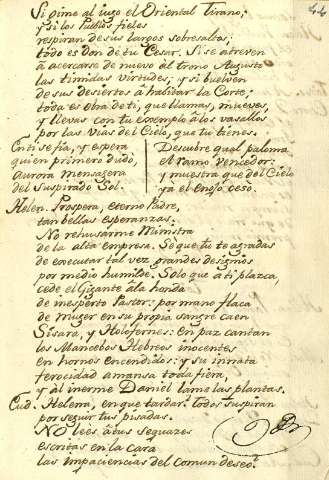 44
Si gime al iugo el Oriental Tirano;
y si los Pueblos fieles
respiran de sus largos sobresaltos;
todo es don de tu Cesar. Si se atreven
à acercarse de nuevo al trono Augusto
las timidas virtudes; y si buelven
de sus desiertos à habitar la Corte;
toda es obra de ti, que llamas, mueves,
y llevas con tu exemplo à los vasallos
por las vias del Cielo, que tu tienes.
En ti se fia, y espera
quien primero dudó,
Aurora mensagera
del suspirado Sol.
Descubre qual paloma
el ramo vencedor:
y muestra que del Cielo
ya el enojo ceso.
Helen. Prospera, eterno Padre,
tan bellas esperanzas.
No rehusarme Ministra
de la alta empresa. Se que tu te agradas
de executar tal vez grandes designios
por medio humilde. Solo que à ti plazca,
cede el Gigante à la honda
de inesperto Pastor: por mano flaca
de muger en su propia sangre caen
Sisara, y Holofernes: en paz cantan
los Mancebos Hebreos inocentes
en hornos encendidos: y su innata
ferocidad amansa toda fiera,
y al inerme Daniel lame las plantas.
Eud. Helena, en que tardar? todos suspiran
por seguir tus pisadas.
No lees à tus sequazes
escritas en la cara
las impaciencias del comun deseo?